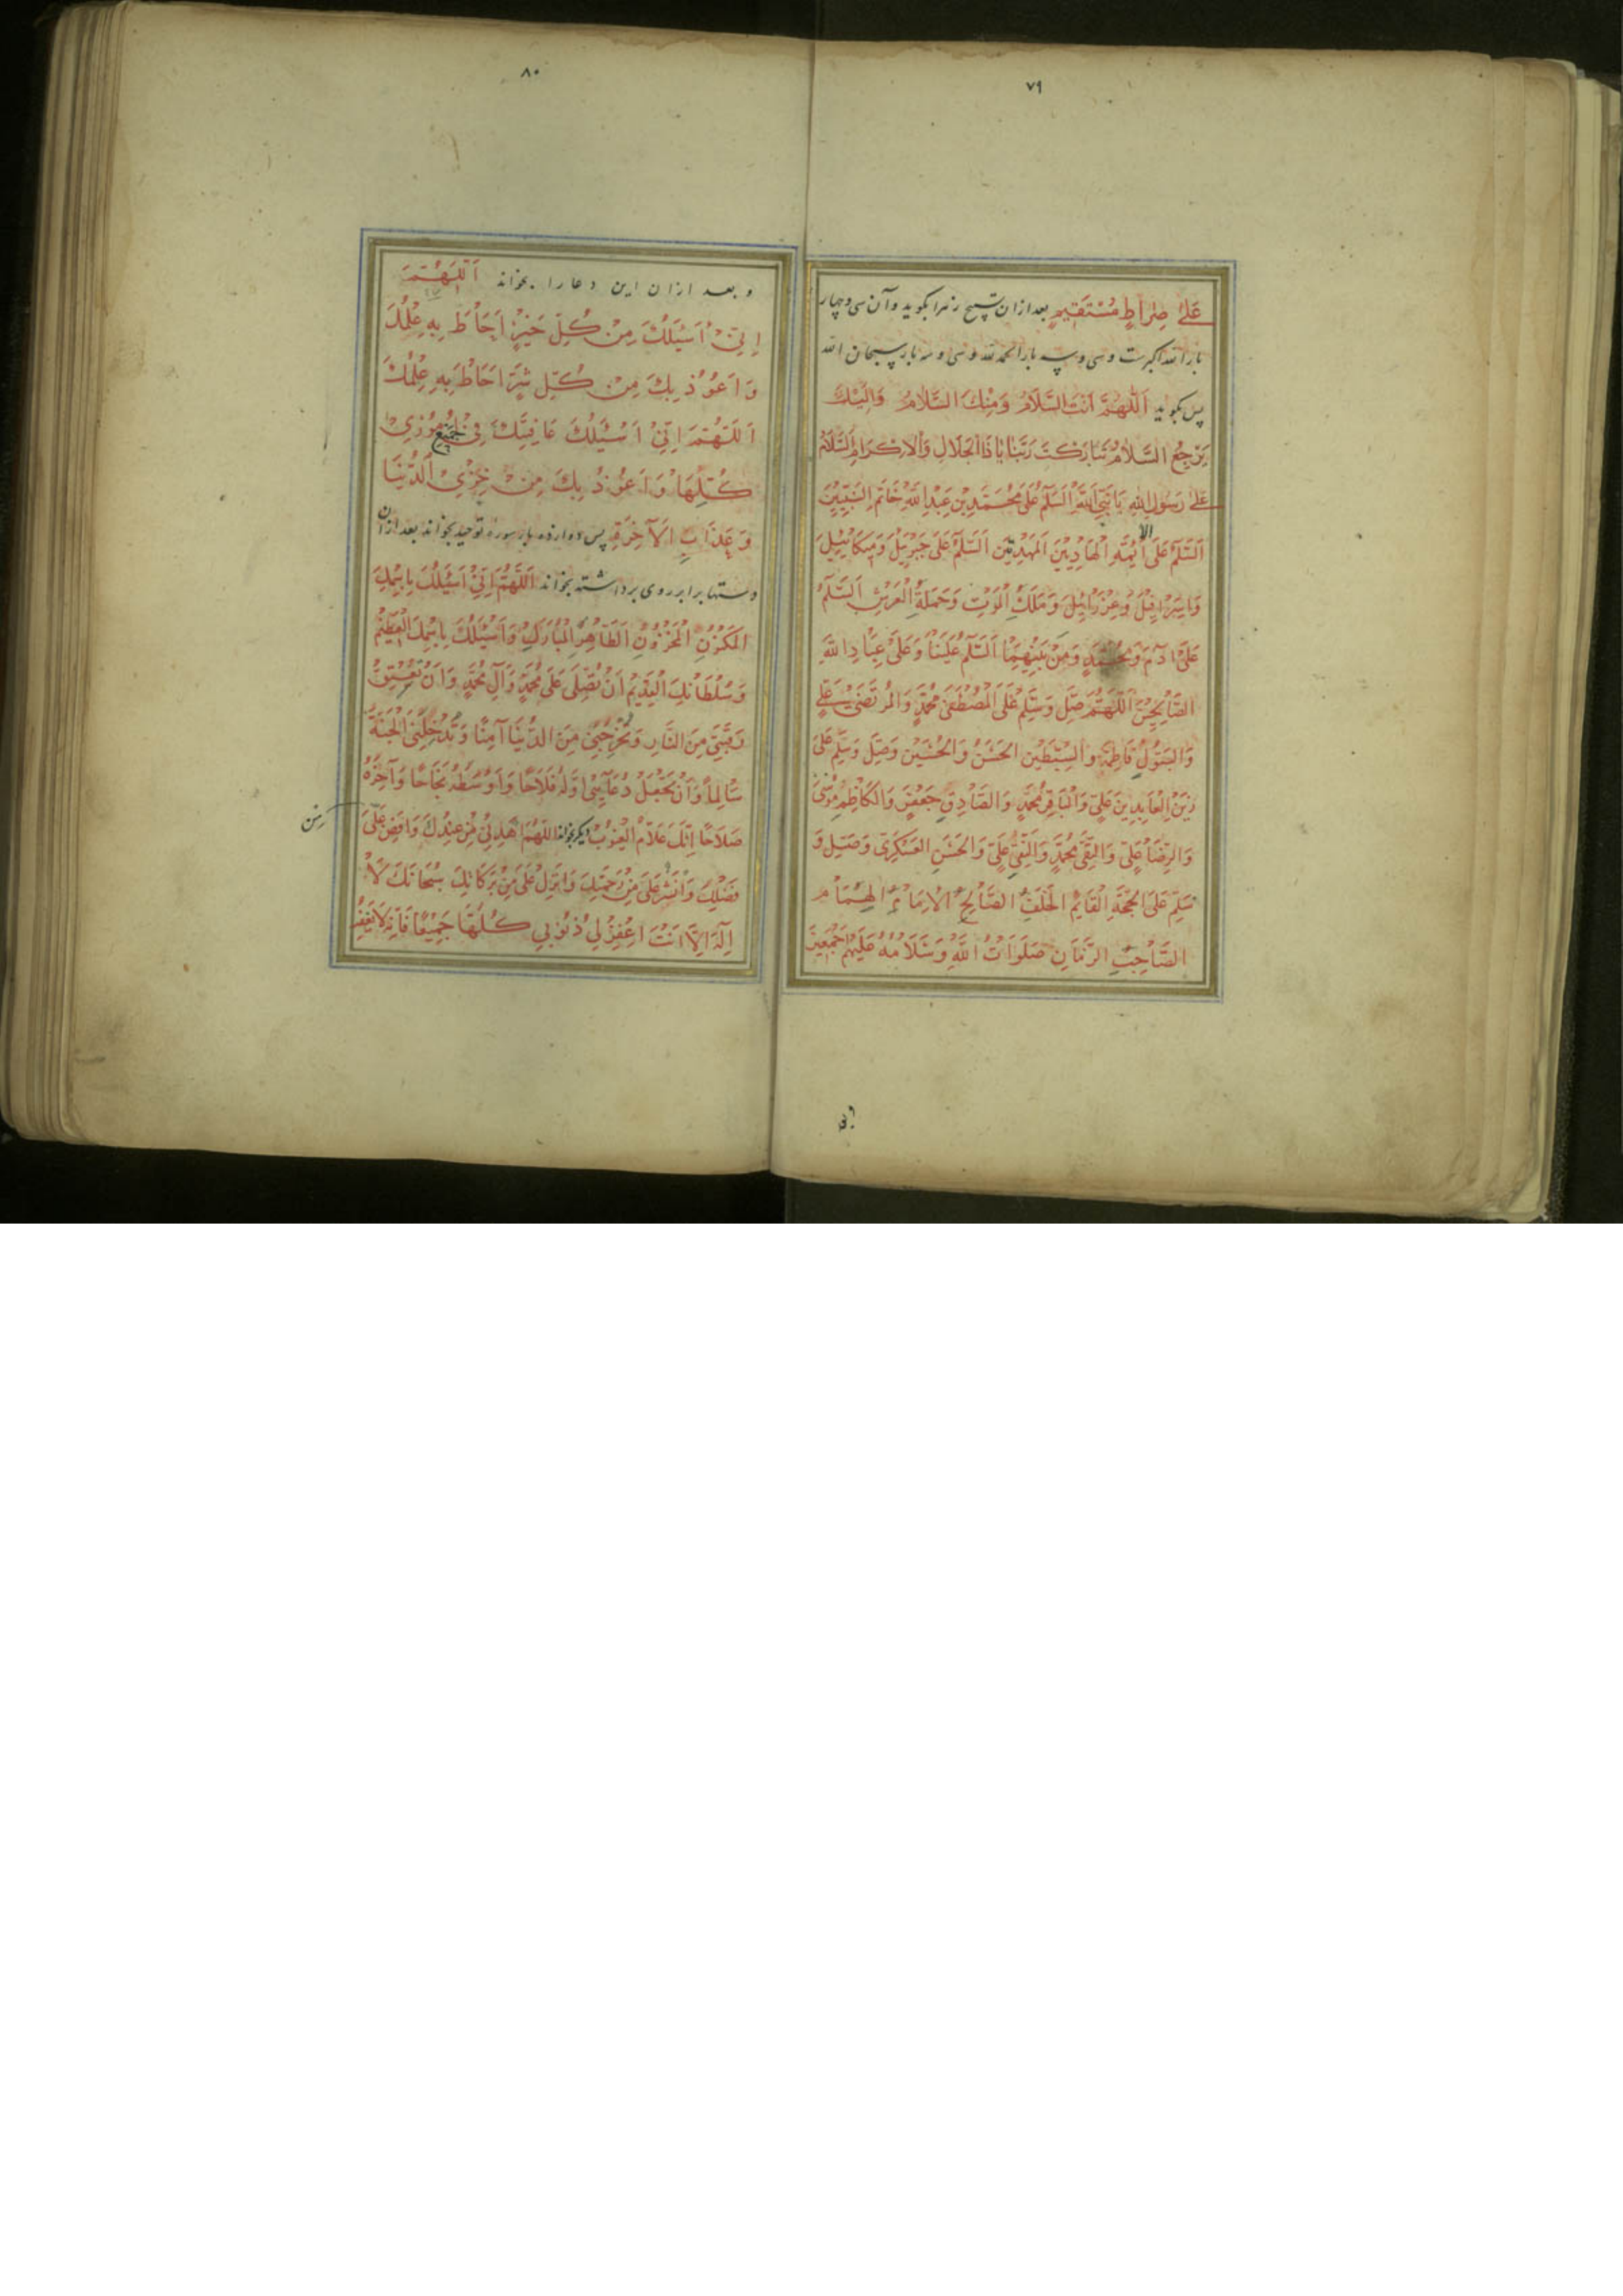 ٧٩
عَلىٰ صِرٰاطٍ مُسْتَقِيمٍ بعد ازان تسبیح زهرا بکوید و آن سی و چهار
بار الله اکبرست و سی و سه بار الحمد لله و سی و سه بار سبحان الله
پس بکوید اَللّٰهُمَّ اَنْتَ السَّلَامُ وَمِنْكَ السَّلَامُ وَاِلَيْكَ
يَرْجِعُ السَّلَامُ تَبَارَكْتَ رَبَّنَا يَا ذَا الْجَلَالِ وَالْاِكْرَامِ اَلسَّلَامُ
عَلىٰ رَسُولِ اللهِ يَا نَبِيَّ اللهِ اَلسَّلٰمُ عَلىٰ مُحَمَّدِ بْنِ عَبْدِ اللهِ خَاتَمِ النَّبِيِّينَ
اَلسَّلٰمُ عَلَى الْاَئِمَّةِ الْهَادِيْنَ الْمَهْدِيّيْنَ اَلسَّلٰمُ عَلىٰ جَبْرَئِيْلَ وَمِيكَائِيْلَ
وَاِسْرَافِيْلَ وَعِزْرَائِيْلَ وَمَلَكِ الْمَوْتِ وَحَمَلَةِ الْعَرْشِ اَلسَّلٰمُ
عَلىٰ اٰدَمَ وَمُحَمَّدٍ وَمَنْ بَيْنَهُمَا اَلسَّلٰمُ عَلَيْنَا وَعَلىٰ عِبَادِ اللهِ
الصَّالِحِيْنَ اَللّٰهُمَّ صَلِّ وَسَلِّمْ عَلَى الْمُصْطَفىٰ مُحَمَّدٍ وَالْمُرْتَضىٰ عَلِيٍّ
وَالْبَتُولِ فَاطِمَةَ وَالسِّبْطَيْنِ الْحَسَنِ وَالْحُسَيْنِ وَصَلِّ وَسَلِّمْ عَلىٰ
زَيْنِ الْعَابِدِيْنَ عَلِيٍّ وَالْبَاقِرِ مُحَمَّدٍ وَالصَّادِقِ جَعْفَرٍ وَالْكَاظِمِ مُوسىٰ
وَالرِّضَا عَلِيٍّ وَالتَّقِيِّ مُحَمَّدٍ وَالنَّقِيِّ عَلِيٍّ وَالْحَسَنِ الْعَسْكَرِيِّ وَصَلِّ وَ
سَلِّمْ عَلَى الْحُجَّةِ الْقَائِمِ الْخَلَفِ الصَّالِحِ الْاِمَامِ الْهُمَامِ
الصَّاحِبِ الزَّمَانِ صَلَوَاتُ اللهِ وَسَلَامُهُ عَلَيْهِمْ اَجْمَعِيْنَ
٨٠
و بعد ازان این دعا را بخواند اَللّٰهُمَّ
اِنِّيْ اَسْئَلُكَ مِنْ كُلِّ خَيْرٍ اَحَاطَ بِهِ عِلْمُكَ
وَاَعُوْذُ بِكَ مِنْ كُلِّ شَرٍّ اَحَاطَ بِهِ عِلْمُكَ
اَللّٰهُمَّ اِنِّيْ اَسْئَلُكَ عَافِيَتَكَ فِيْ جَمِيْعِ اُمُوْرِيْ
كُلِّهَا وَاَعُوْذُ بِكَ مِنْ خِزْيِ الدُّنْيَا
وَعَذَابِ الْاٰخِرَةِ پس دوازده بار سوره توحید بخواند بعد ازان
دستها برابر روی برداشته بخواند اَللّٰهُمَّ اِنِّيْ اَسْئَلُكَ بِاسْمِكَ
الْمَكْنُونِ الْمَخْزُونِ الطَّاهِرِ الْمُبَارَكِ وَاَسْئَلُكَ بِاسْمِكَ الْعَظِيْمِ
وَسُلْطَانِكَ الْقَدِيْمِ اَنْ تُصَلِّيَ عَلىٰ مُحَمَّدٍ وَآلِ مُحَمَّدٍ وَاَنْ تُعْتِقَ
رَقَبَتِيْ مِنَ النَّارِ وَتُخْرِجَنِيْ مِنَ الدُّنْيَا آمِنًا وَتُدْخِلَنِيْ الْجَنَّةَ
سَالِمًا وَاَنْ تَجْعَلَ دُعَائِيْ اَوَّلَهُ فَلَاحًا وَاَوْسَطَهُ نَجَاحًا وَآخِرَهُ
صَلَاحًا اِنَّكَ عَلَّامُ الْغُيُوْبِ دیکر بخواند اَللّٰهُمَّ اهْدِنِيْ مِنْ عِنْدِكَ وَاَفِضْ عَلَيَّ
مِنْ
فَضْلِكَ وَانْشُرْ عَلَيَّ مِنْ رَحْمَتِكَ وَاَنْزِلْ عَلَيَّ مِنْ بَرَكَاتِكَ سُبْحَانَكَ لَا
اِلٰهَ اِلَّا اَنْتَ اغْفِرْ لِيْ ذُنُوْبِيْ كُلَّهَا جَمِيْعًا فَاِنَّهُ لَا يَغْفِرُ